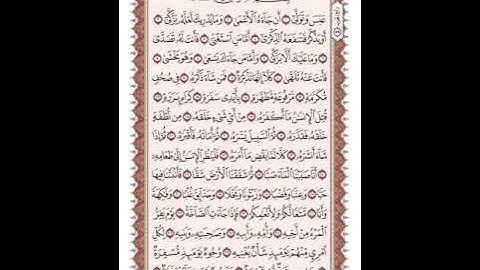 عَبَسَ وَتَوَلَّىٰٓ ۝١ أَن جَآءَهُ ٱلْأَعْمَىٰ ۝٢ وَمَا يُدْرِيكَ لَعَلَّهُۥ يَزَّكَّىٰٓ ۝٣
أَوْ يَذَّكَّرُ فَتَنفَعَهُ ٱلذِّكْرَىٰٓ ۝٤ أَمَّا مَنِ ٱسْتَغْنَىٰ ۝٥ فَأَنتَ لَهُۥ تَصَدَّىٰ ۝٦
وَمَا عَلَيْكَ أَلَّا يَزَّكَّىٰ ۝٧ وَأَمَّا مَن جَآءَكَ يَسْعَىٰ ۝٨ وَهُوَ يَخْشَىٰ ۝٩
فَأَنتَ عَنْهُ تَلَهَّىٰ ۝١٠ كَلَّآ إِنَّهَا تَذْكِرَةٌ ۝١١ فَمَن شَآءَ ذَكَرَهُۥ ۝١٢ فِى صُحُفٍ
مُّكَرَّمَةٍ ۝١٣ مَّرْفُوعَةٍ مُّطَهَّرَةٍۭ ۝١٤ بِأَيْدِى سَفَرَةٍ ۝١٥ كِرَامٍۭ بَرَرَةٍ ۝١٦
قُتِلَ ٱلْإِنسَٰنُ مَآ أَكْفَرَهُۥ ۝١٧ مِنْ أَىِّ شَىْءٍ خَلَقَهُۥ ۝١٨ مِن نُّطْفَةٍ
خَلَقَهُۥ فَقَدَّرَهُۥ ۝١٩ ثُمَّ ٱلسَّبِيلَ يَسَّرَهُۥ ۝٢٠ ثُمَّ أَمَاتَهُۥ فَأَقْبَرَهُۥ ۝٢١ ثُمَّ إِذَا
شَآءَ أَنشَرَهُۥ ۝٢٢ كَلَّا لَمَّا يَقْضِ مَآ أَمَرَهُۥ ۝٢٣ فَلْيَنظُرِ ٱلْإِنسَٰنُ إِلَىٰ طَعَامِهِۦٓ ۝٢٤
أَنَّا صَبَبْنَا ٱلْمَآءَ صَبًّا ۝٢٥ ثُمَّ شَقَقْنَا ٱلْأَرْضَ شَقًّا ۝٢٦ فَأَنۢبَتْنَا فِيهَا
حَبًّا ۝٢٧ وَعِنَبًا وَقَضْبًا ۝٢٨ وَزَيْتُونًا وَنَخْلًا ۝٢٩ وَحَدَآئِقَ غُلْبًا ۝٣٠ وَفَٰكِهَةً
وَأَبًّا ۝٣١ مَّتَٰعًا لَّكُمْ وَلِأَنْعَٰمِكُمْ ۝٣٢ فَإِذَا جَآءَتِ ٱلصَّآخَّةُ ۝٣٣ يَوْمَ يَفِرُّ
ٱلْمَرْءُ مِنْ أَخِيهِ ۝٣٤ وَأُمِّهِۦ وَأَبِيهِ ۝٣٥ وَصَٰحِبَتِهِۦ وَبَنِيهِ ۝٣٦ لِكُلِّ
ٱمْرِئٍ مِّنْهُمْ يَوْمَئِذٍ شَأْنٌ يُغْنِيهِ ۝٣٧ وُجُوهٌ يَوْمَئِذٍ مُّسْفِرَةٌ ۝٣٨